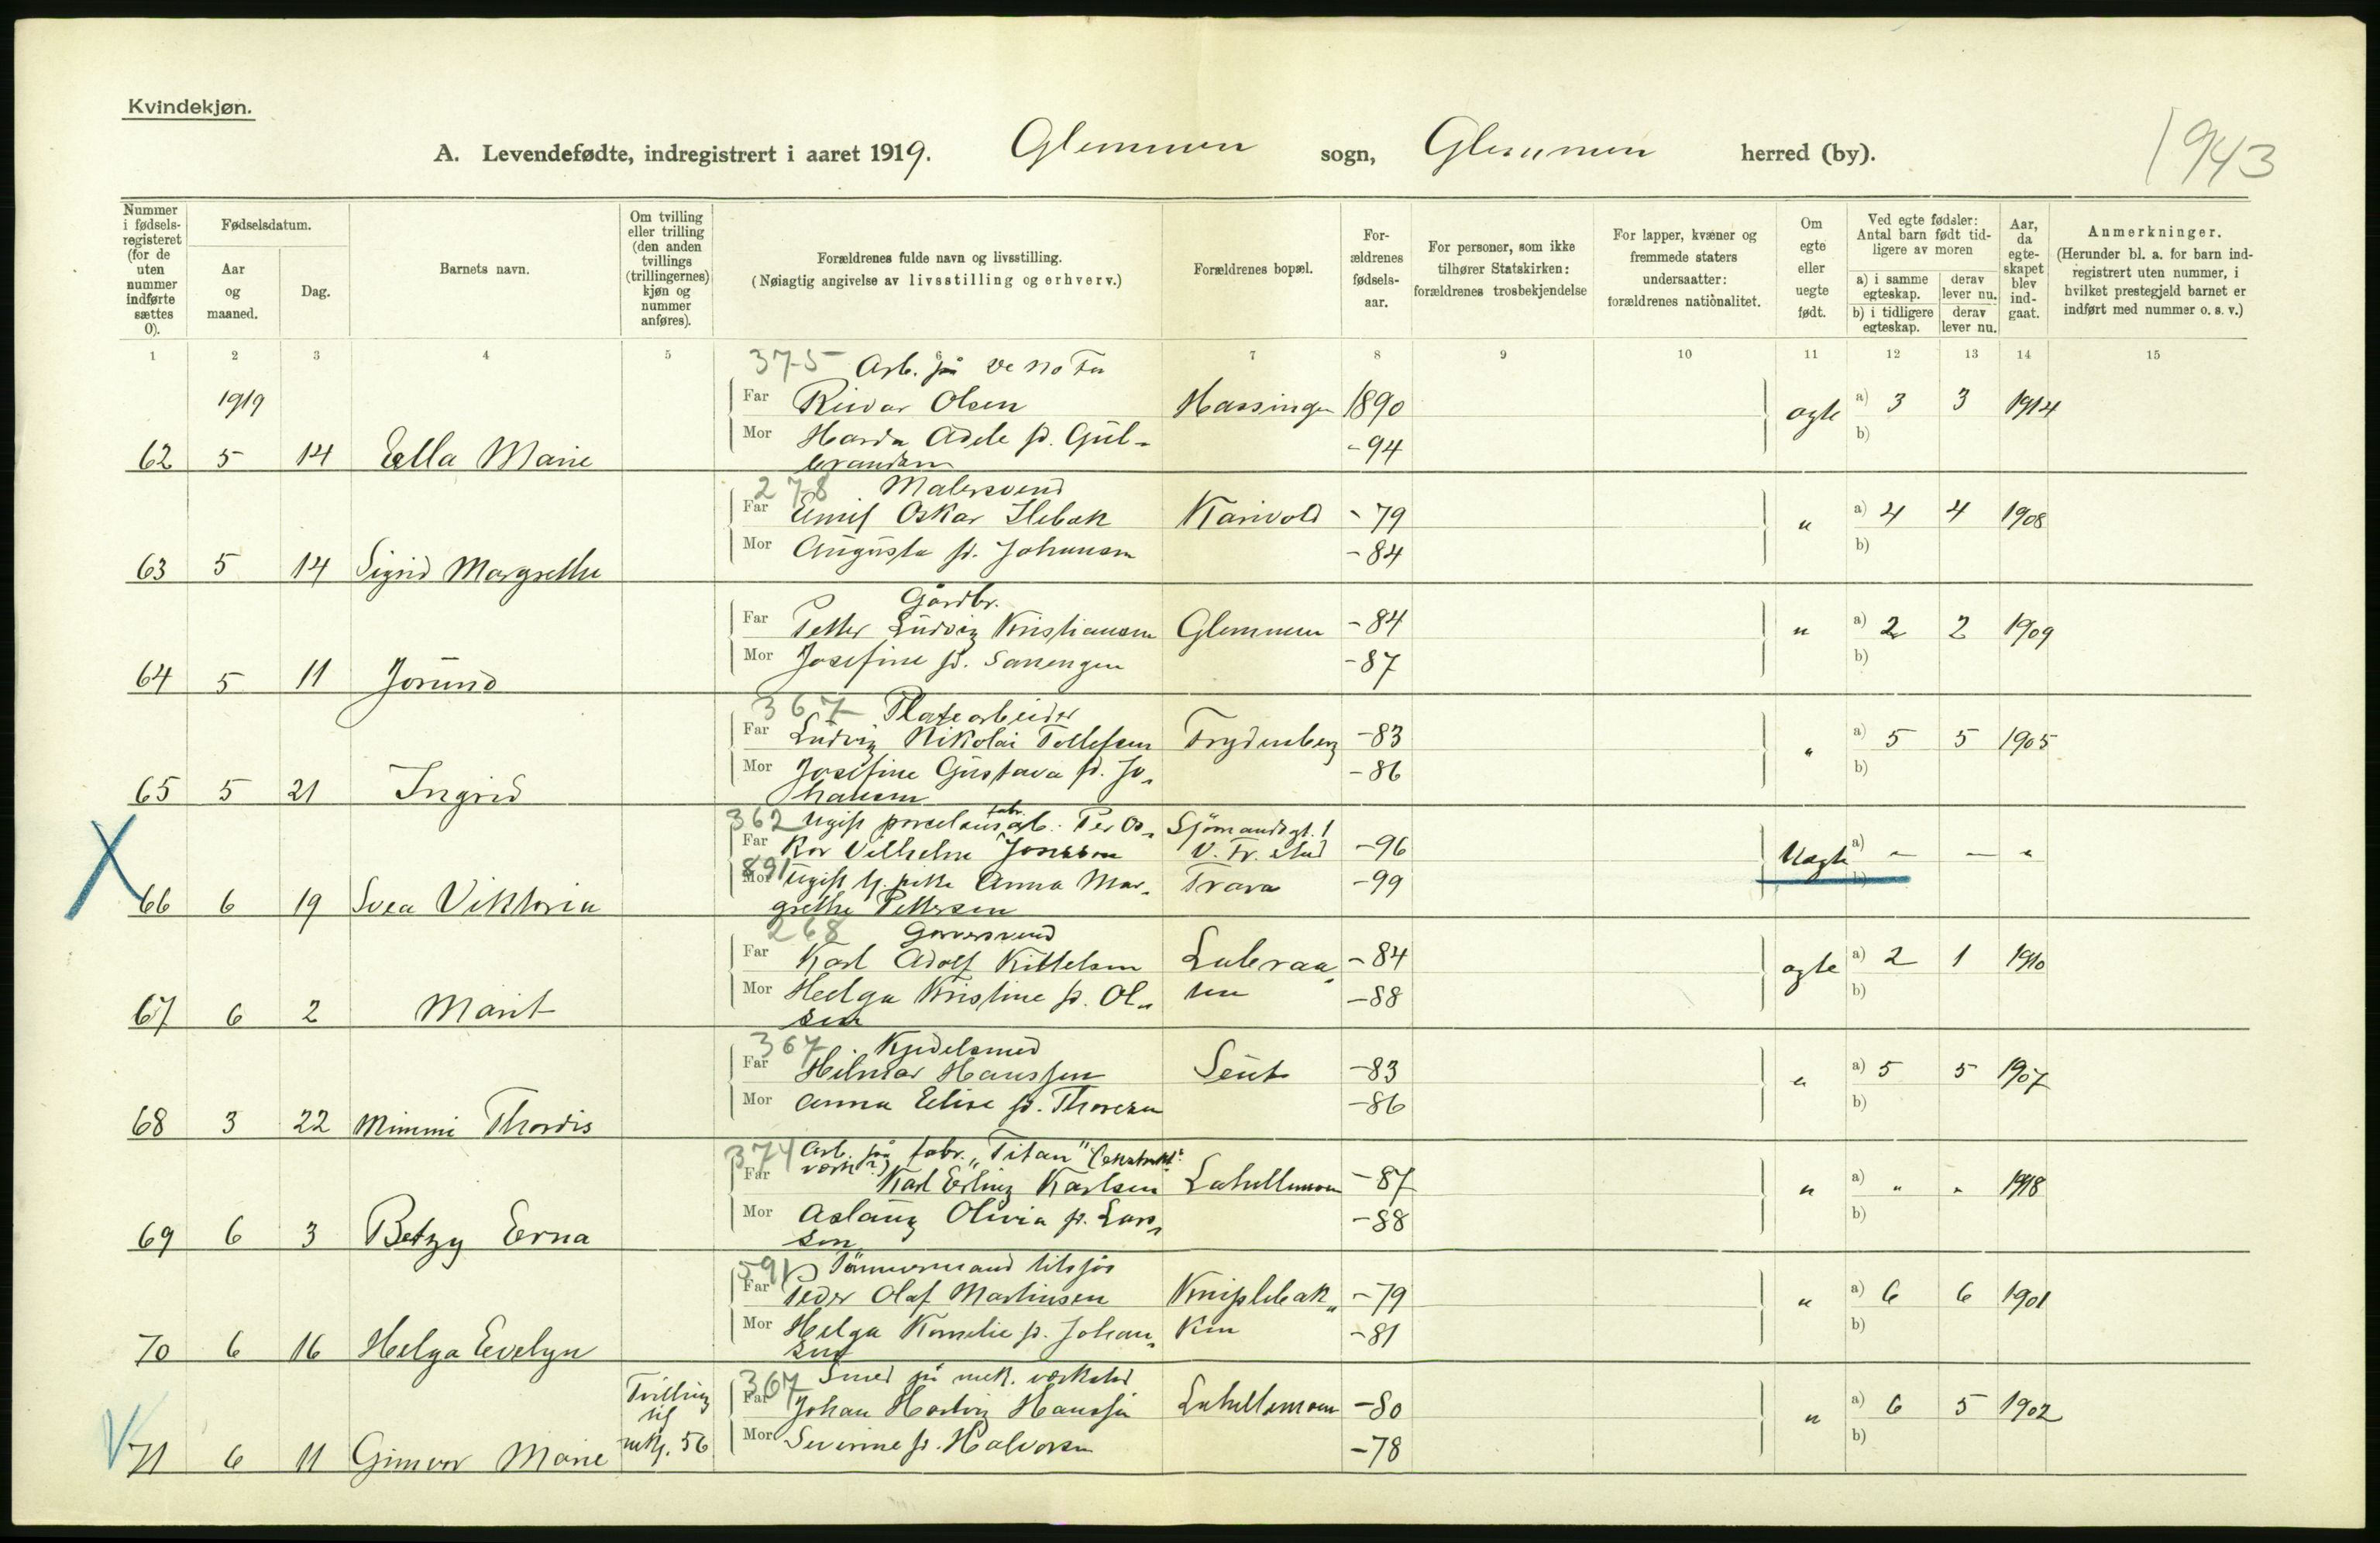 Kvindekjøn.
A. Levendefødte, indregistrert i aaret 1919. Glemmen sogn, Glemmen herred (by).
1943
Nummer i fødsels-registeret (for de uten nummer indførte sættes 0).
Fødselsdatum.
Aar og maaned.
Dag.
Barnets navn.
Om tvilling eller trilling (den anden tvillings (trillingernes) kjøn og nummer anføres).
Forældrenes fulde navn og livsstilling.
(Nøiagtig angivelse av livsstilling og erhverv.)
Forældrenes bopæl.
For-ældrenes fødsels-aar.
For personer, som ikke tilhører Statskirken: forældrenes trosbekjendelse
For lapper, kvæner og fremmede staters undersaatter: forældrenes nationalitet.
Om egte eller uegte født.
Ved egte fødsler: Antal barn født tid-ligere av moren
a) i samme egteskap.
derav lever nu.
b) i tidligere egteskap.
derav lever nu.
Aar, da egte-skapet blev ind-gaat.
Anmerkninger.
(Herunder bl. a. for barn ind-registrert uten nummer, i hvilket prestegjeld barnet er indført med nummer o. s. v.)
1 2 3 4 5 6 7 8 9 10 11 12 13 14 15
375 Arb. på De No Fa
1919
Far Olsen 1890 a) 3 3 1914
Mor Adele f. Gul- -94 b)
62 5 14 Ella Marie
brandsen
278 Malersvend
Far Emil Oskar -79 " a) 4 4 1908
Mor Augusta f. Johansen -84 b)
63 5 14 Sigrid Margrethe
Gårdbr.
Far Petter Ludvig Kristiansen Glemmen -84 " a) 2 2 1909
Mor Josefine f. -87 b)
64 5 11 Jorund
367 Platearbeider
Far Ludvig Nikolai Tollefsen Trydenberg -83 " a) 5 5 1905
Mor Josefine Gustava f. Jo- -86 b)
65 5 21 Ingrid
hansen
362 Ugift porcelænsfabr. arb. Per Os- Sjømandsgt. 1
Far kar Vilhelm V. Fr.stad -96 Uegte a) - - "
891 Mor Ugift Anna Mar- Trara -99 b)
66 6 19 Svea Viktoria
grethe Pettersen
268 Garversvend
Far Karl Adolf Kittelsen -84 egte a) 2 1 1910
Mor Helga Kristine f. Ol- -88 b)
67 6 2 Marit
sen
367 Kjedelsmed
Far Hilmar Hanssen Seut -83 " a) 5 5 1907
Mor Anna Elise f. Thoresen -86 b)
68 3 22 Mimmi Thordis
374 Arb. på fabr. "Titan"
Far Karl Erling Karlsen Lahellemoen -87 " a) " " 1918
Mor Aslaug Olivia f. Lar- -88 b)
69 6 3 Betzy Erna
sen
591 Tømmermand tilsjøs
Far Peder Olaf Martinsen Kniplebak- -79 " a) 6 6 1901
Mor Helga Kornelie f. Johan- ken -81 b)
70 6 16 Helga Evelyn
sen
Tvilling til mkj. 56
367 Smed på mek. verksted
Far Johan Hartvig Hanssen Lahellemoen -80 " a) 6 5 1902
Mor Severine f. Halvorsen -78 b)
71 6 11 Gunvor Marie